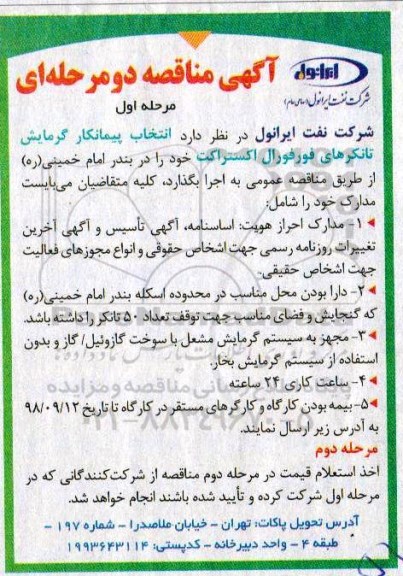 آگهی مناقصه دومرحله‌ای
ایرانول
شرکت نفت ایرانول (سهامی عام)
مرحله اول
شرکت نفت ایرانول در نظر دارد انتخاب پیمانکار گرمایش
تانکرهای فورفورال اکستراکت خود را در بندر امام خمینی(ره)
از طریق مناقصه عمومی به اجرا بگذارد، کلیه متقاضیان می‌بایست
مدارک خود را شامل:
۱- مدارک احراز هویت: اساسنامه، آگهی تأسیس و آگهی آخرین
تغییرات روزنامه رسمی جهت اشخاص حقوقی و انواع مجوزهای فعالیت
جهت اشخاص حقیقی.
۲- دارا بودن محل مناسب در محدوده اسکله بندر امام خمینی(ره)
که گنجایش و فضای مناسب جهت توقف تعداد ۵۰ تانکر را داشته باشد.
۳- مجهز به سیستم گرمایش مشعل با سوخت گازوئیل/ گاز و بدون
استفاده از سیستم گرمایش بخار.
۴- ساعت کاری ۲۴ ساعته
۵- بیمه بودن کارگاه و کارگرهای مستقر در کارگاه تا تاریخ ۹۸/۰۹/۱۲
به آدرس زیر ارسال نمایند.
مرحله دوم
اخذ استعلام قیمت در مرحله دوم مناقصه از شرکت‌کنندگانی که در
مرحله اول شرکت کرده و تأیید شده باشند انجام خواهد شد.
آدرس تحویل پاکات: تهران - خیابان ملاصدرا - شماره ۱۹۷ -
طبقه ۴ - واحد دبیرخانه - کدپستی: ۱۹۹۳۶۴۳۱۱۴